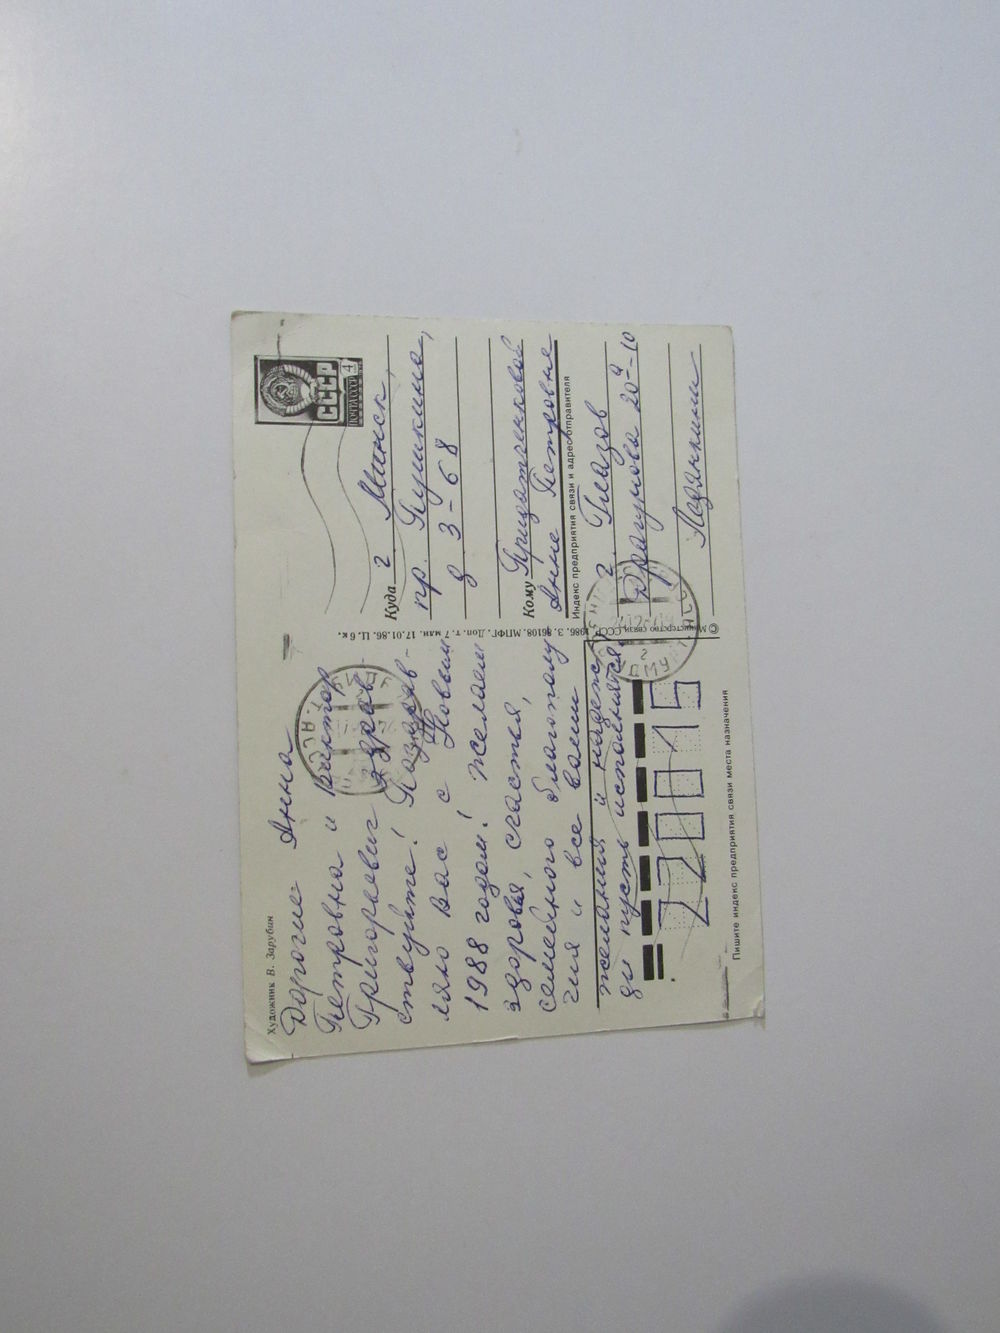 Художник В. Зарубин
Дорогие Анна
Петровна и Виктор
Григорьевич здрав-
ствуйте! Поздрав-
ляю Вас с Новым
1988 годом! Желаем
здоровья, счастья,
семейного благополу-
чия и все ваши
желания и надеж-
ды пусть исполнятся.
220015
Пишите индекс предприятия связи места назначения
© Министерство связи СССР, 1986. З. 86108. МПФГ. Доп. т. 7 млн. 17.01.86. Ц. 6 к.
СССР
ПОЧТА СССР 4
Куда г. Минск,
пр. Пушкина,
д 3-68
Кому
Анне Петровне
Индекс предприятия связи и адрес отправителя
г. Глазов
Драгунова 20а-10